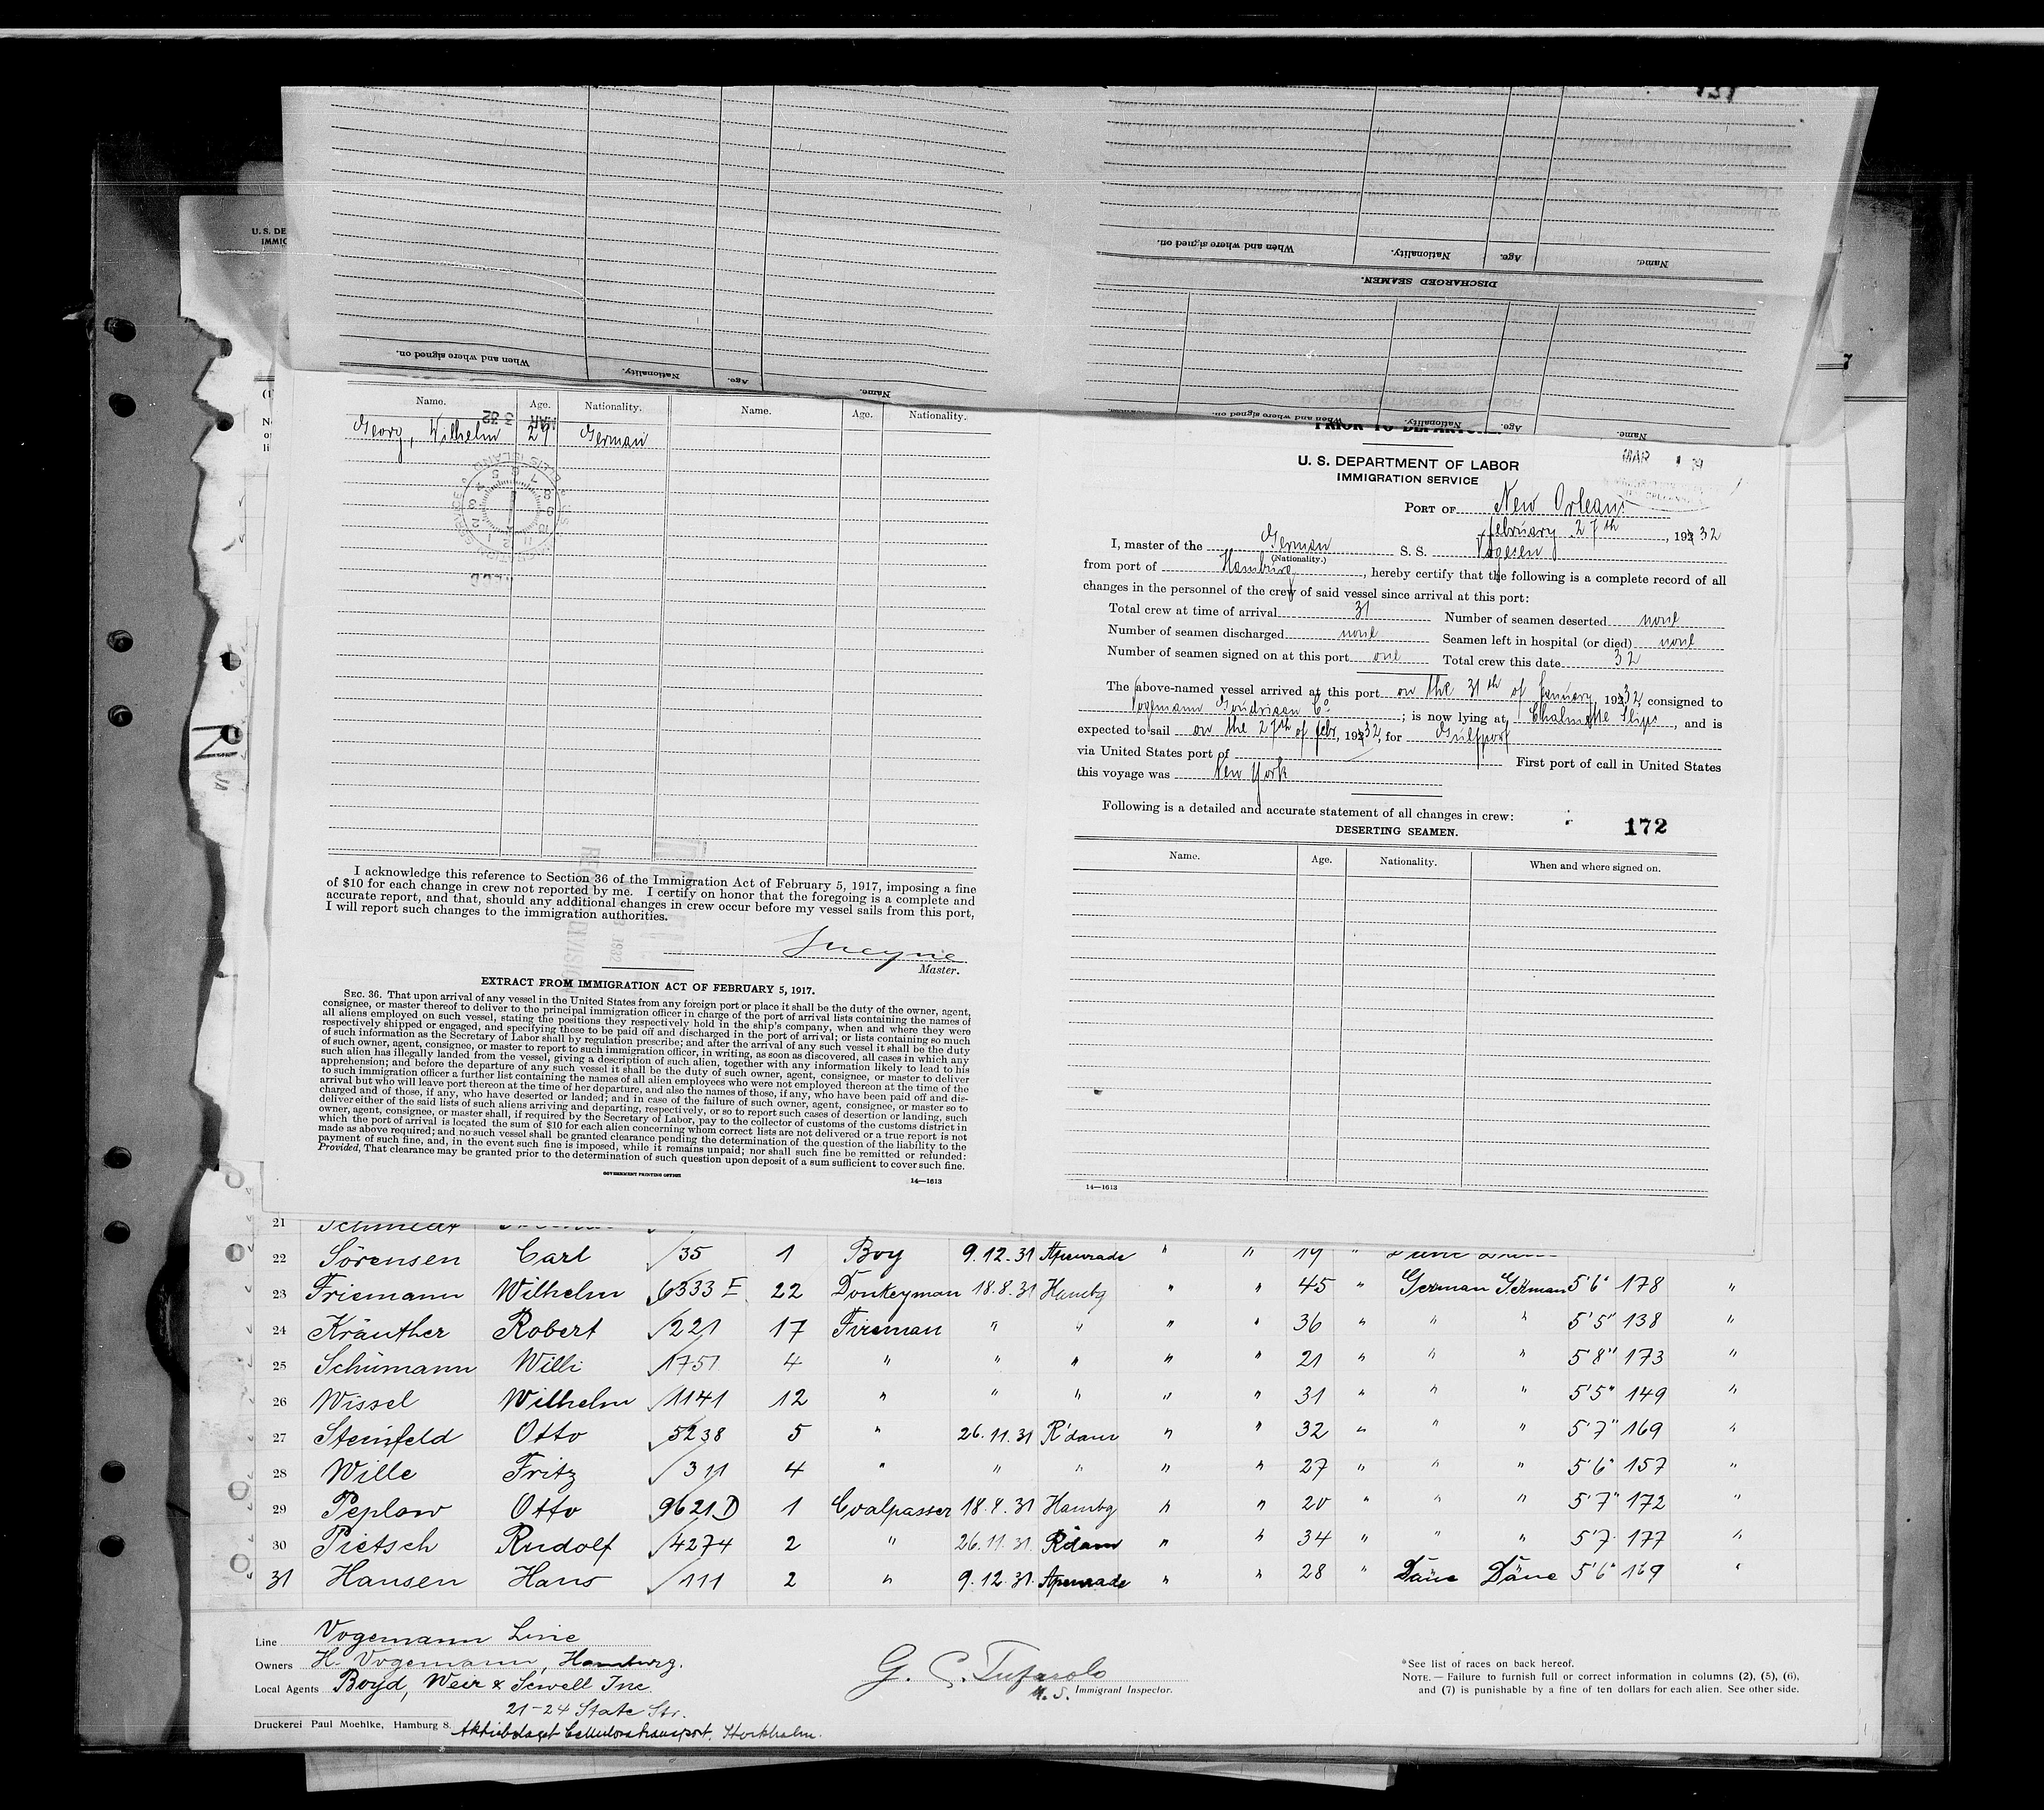 U. S. DE
IMMIG
DISCHARGED SEAMEN.
Name. Age. Nationality. When and where signed on.
Name. Age. Nationality. When and where signed on.
Name. Age. Nationality. Name. Age. Nationality.
Georg, Wilhelm 27 German
MAR 3 32
I acknowledge this reference to Section 36 of the Immigration Act of February 5, 1917, imposing a fine
of $10 for each change in crew not reported by me. I certify on honor that the foregoing is a complete and
accurate report, and that, should any additional changes in crew occur before my vessel sails from this port,
I will report such changes to the immigration authorities.
Master.
EXTRACT FROM IMMIGRATION ACT OF FEBRUARY 5, 1917.
SEC. 36. That upon arrival of any vessel in the United States from any foreign port or place it shall be the duty of the owner, agent,
consignee, or master thereof to deliver to the principal immigration officer in charge of the port of arrival lists containing the names of
all aliens employed on such vessel, stating the positions they respectively hold in the ship's company, when and where they were
respectively shipped or engaged, and specifying those to be paid off and discharged in the port of arrival; or lists containing so much
of such information as the Secretary of Labor shall by regulation prescribe; and after the arrival of any such vessel it shall be the duty
of such owner, agent, consignee, or master to report to such immigration officer, in writing, as soon as discovered, all cases in which any
such alien has illegally landed from the vessel, giving a description of such alien, together with any information likely to lead to his
apprehension; and before the departure of any such vessel it shall be the duty of such owner, agent, consignee, or master to deliver
to such immigration officer a further list containing the names of all alien employees who were not employed thereon at the time of the
arrival but who will leave port thereon at the time of her departure, and also the names of those, if any, who have been paid off and dis-
charged and of those, if any, who have deserted or landed; and in case of the failure of such owner, agent, consignee, or master so to
deliver either of the said lists of such aliens arriving and departing, respectively, or so to report such cases of desertion or landing, such
owner, agent, consignee, or master shall, if required by the Secretary of Labor, pay to the collector of customs of the customs district in
which the port of arrival is located the sum of $10 for each alien concerning whom correct lists are not delivered or a true report is not
made as above required; and no such vessel shall be granted clearance pending the determination of the question of the liability to the
payment of such fine, and, in the event such fine is imposed, while it remains unpaid; nor shall such fine be remitted or refunded:
Provided, That clearance may be granted prior to the determination of such question upon deposit of a sum sufficient to cover such fine.
GOVERNMENT PRINTING OFFICE
14—1613
PRIOR TO DEPARTURE
U. S. DEPARTMENT OF LABOR
IMMIGRATION SERVICE
MAR 1
PORT OF New Orleans
february 27th, 1932
I, master of the German S. S. Vogesen
(Nationality.)
from port of Hamburg, hereby certify that the following is a complete record of all
changes in the personnel of the crew of said vessel since arrival at this port:
Total crew at time of arrival 31 Number of seamen deserted none
Number of seamen discharged none Seamen left in hospital (or died) none
Number of seamen signed on at this port one Total crew this date 32
The above-named vessel arrived at this port on the 31th of January 1932, consigned to
Vogemann Goudriaan Co; is now lying at Chalmette Slips, and is
expected to sail on the 27th of febr, 1932, for Gulfport
via United States port of First port of call in United States
this voyage was New York
Following is a detailed and accurate statement of all changes in crew:
172
DESERTING SEAMEN.
Name. Age. Nationality. When and where signed on.
14—1613
21 Schmidt
22 Sörensen Carl 35 1 Boy 9.12.31 Apenrade " " 19 "
23 Friemann Wilhelm 6333 E 22 Donkeyman 18.8.31 Hambg " " 45 " German German 5'6" 178 "
24 Kräuther Robert 221 17 Fireman " " " " 36 " " " 5'5" 138 "
25 Schümann Willi 1751 4 " " " " " 21 " " " 5'8" 173 "
26 Wissel Wilhelm 1141 12 " " " " " 31 " " " 5'5" 149 "
27 Steinfeld Otto 5238 5 " 26.11.31 R'dam " " 32 " " " 5'7" 169 "
28 Wille Fritz 311 4 " " " " " 27 " " " 5'6" 157 "
29 Peplow Otto 9621 D 1 Coalpasser 18.8.31 Hambg " " 20 " " " 5'7" 172 "
30 Pietsch Rudolf 4274 2 " 26.11.31. R'dam " " 34 " " " 5'7 177 "
31 Hansen Hans 111 2 " 9.12.31. Apenrade " " 28 " Däne Däne 5'6" 169 "
Line Vogemann Line
Owners H. Vogemann, Hamburg.
Local Agents Boyd, Weir & Sewell Inc.
21-24 State Str.
Druckerei Paul Moehlke, Hamburg 8. Aktiebolaget Cellulosatransport, Stockholm.
G. C. Tufarolo
U. S. Immigrant Inspector.
*See list of races on back hereof.
NOTE. — Failure to furnish full or correct information in columns (2), (5), (6),
and (7) is punishable by a fine of ten dollars for each alien. See other side.